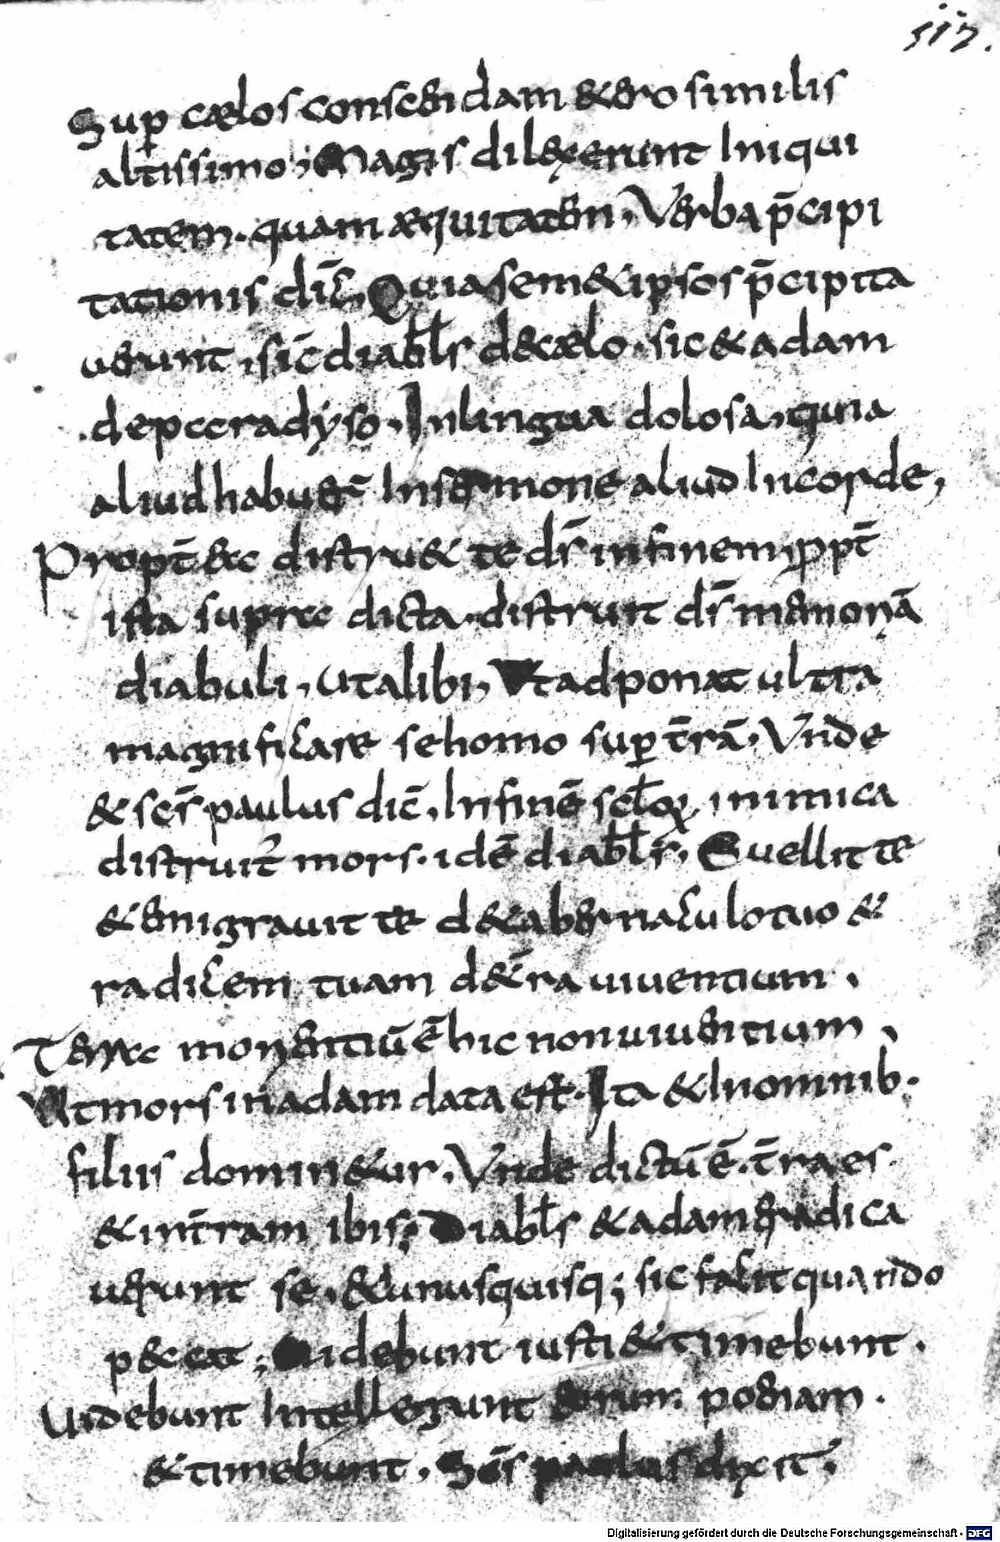 117.
Sup̄ cælos conscendam & ero similis
altissimo; Magis dilexerunt Iniqui
tatem. quam æquitatem, Verba p̄cipi
tationis dic̄, Quia sem& ipsos p̄cipita
uerunt, sic̄ diabl̄s de cælo, sic & adam
de paradyso, In lingua dolosa, quia
aliud habuer̄ In sermone aliud In corde,
Propt̄ ea distru& te dr̄ in finem, ꝓpt̄
ista supra dicta. distruit dr̄ memoriā
diabuli, ut alibi, Ut adponat ultra
magnificare se homo sup̄ t̄rā, Vnde
& sc̄s paulus dic̄, In finē sc̄loꝝ inimica
distruit̄ mors. idē diabl̄s, Euellit te
& emigrauit te de tabernaculo tuo &
radicem tuam de t̄ra uiuentium,
Terra morientiū ē hic non uiuentium,
Ut mors in adam data est. Ita & In omnib.
filiis domin&ur, Vnde dictū ē. t̄ra es
& in t̄ram ibis; Diabl̄s & adam eradica
uerunt se, & unusquisq; sic facit quando
peccat; Uidebunt iusti & timebunt.
Uidebunt Intellegunt eorum poenam.
& timebunt, Sc̄s paulus dixit,
Digitalisierung gefördert durch die Deutsche Forschungsgemeinschaft - DFG